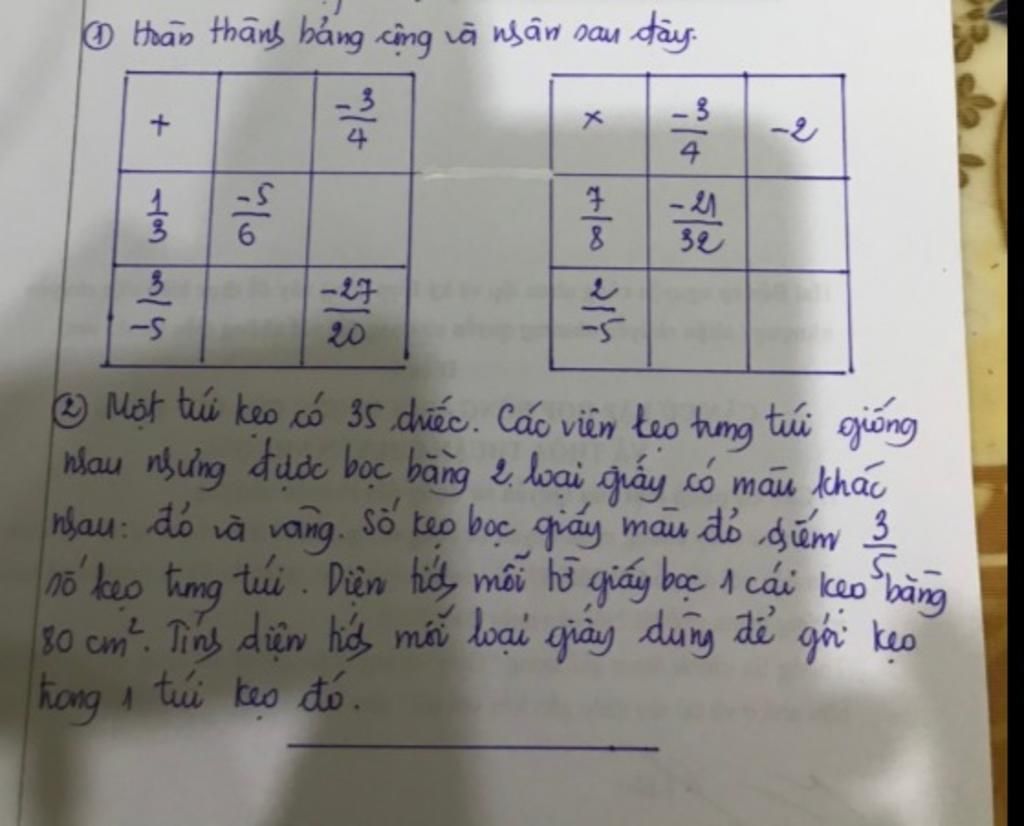 ① Hoàn thành bảng cộng và nhân sau đây.
+ -3/4
1/3 -5/6
3/-5 -27/20
× -3/4 -2
7/8 -21/32
2/-5
② Một túi kẹo có 35 chiếc. Các viên kẹo trong túi giống
nhau nhưng được bọc bằng 2 loại giấy có màu khác
nhau: đỏ và vàng. Số kẹo bọc giấy màu đỏ chiếm 3/5
số kẹo trong túi. Diện tích mỗi tờ giấy bọc 1 cái kẹo bằng
80 cm². Tính diện tích mỗi loại giấy dùng để gói kẹo
trong 1 túi kẹo đó.